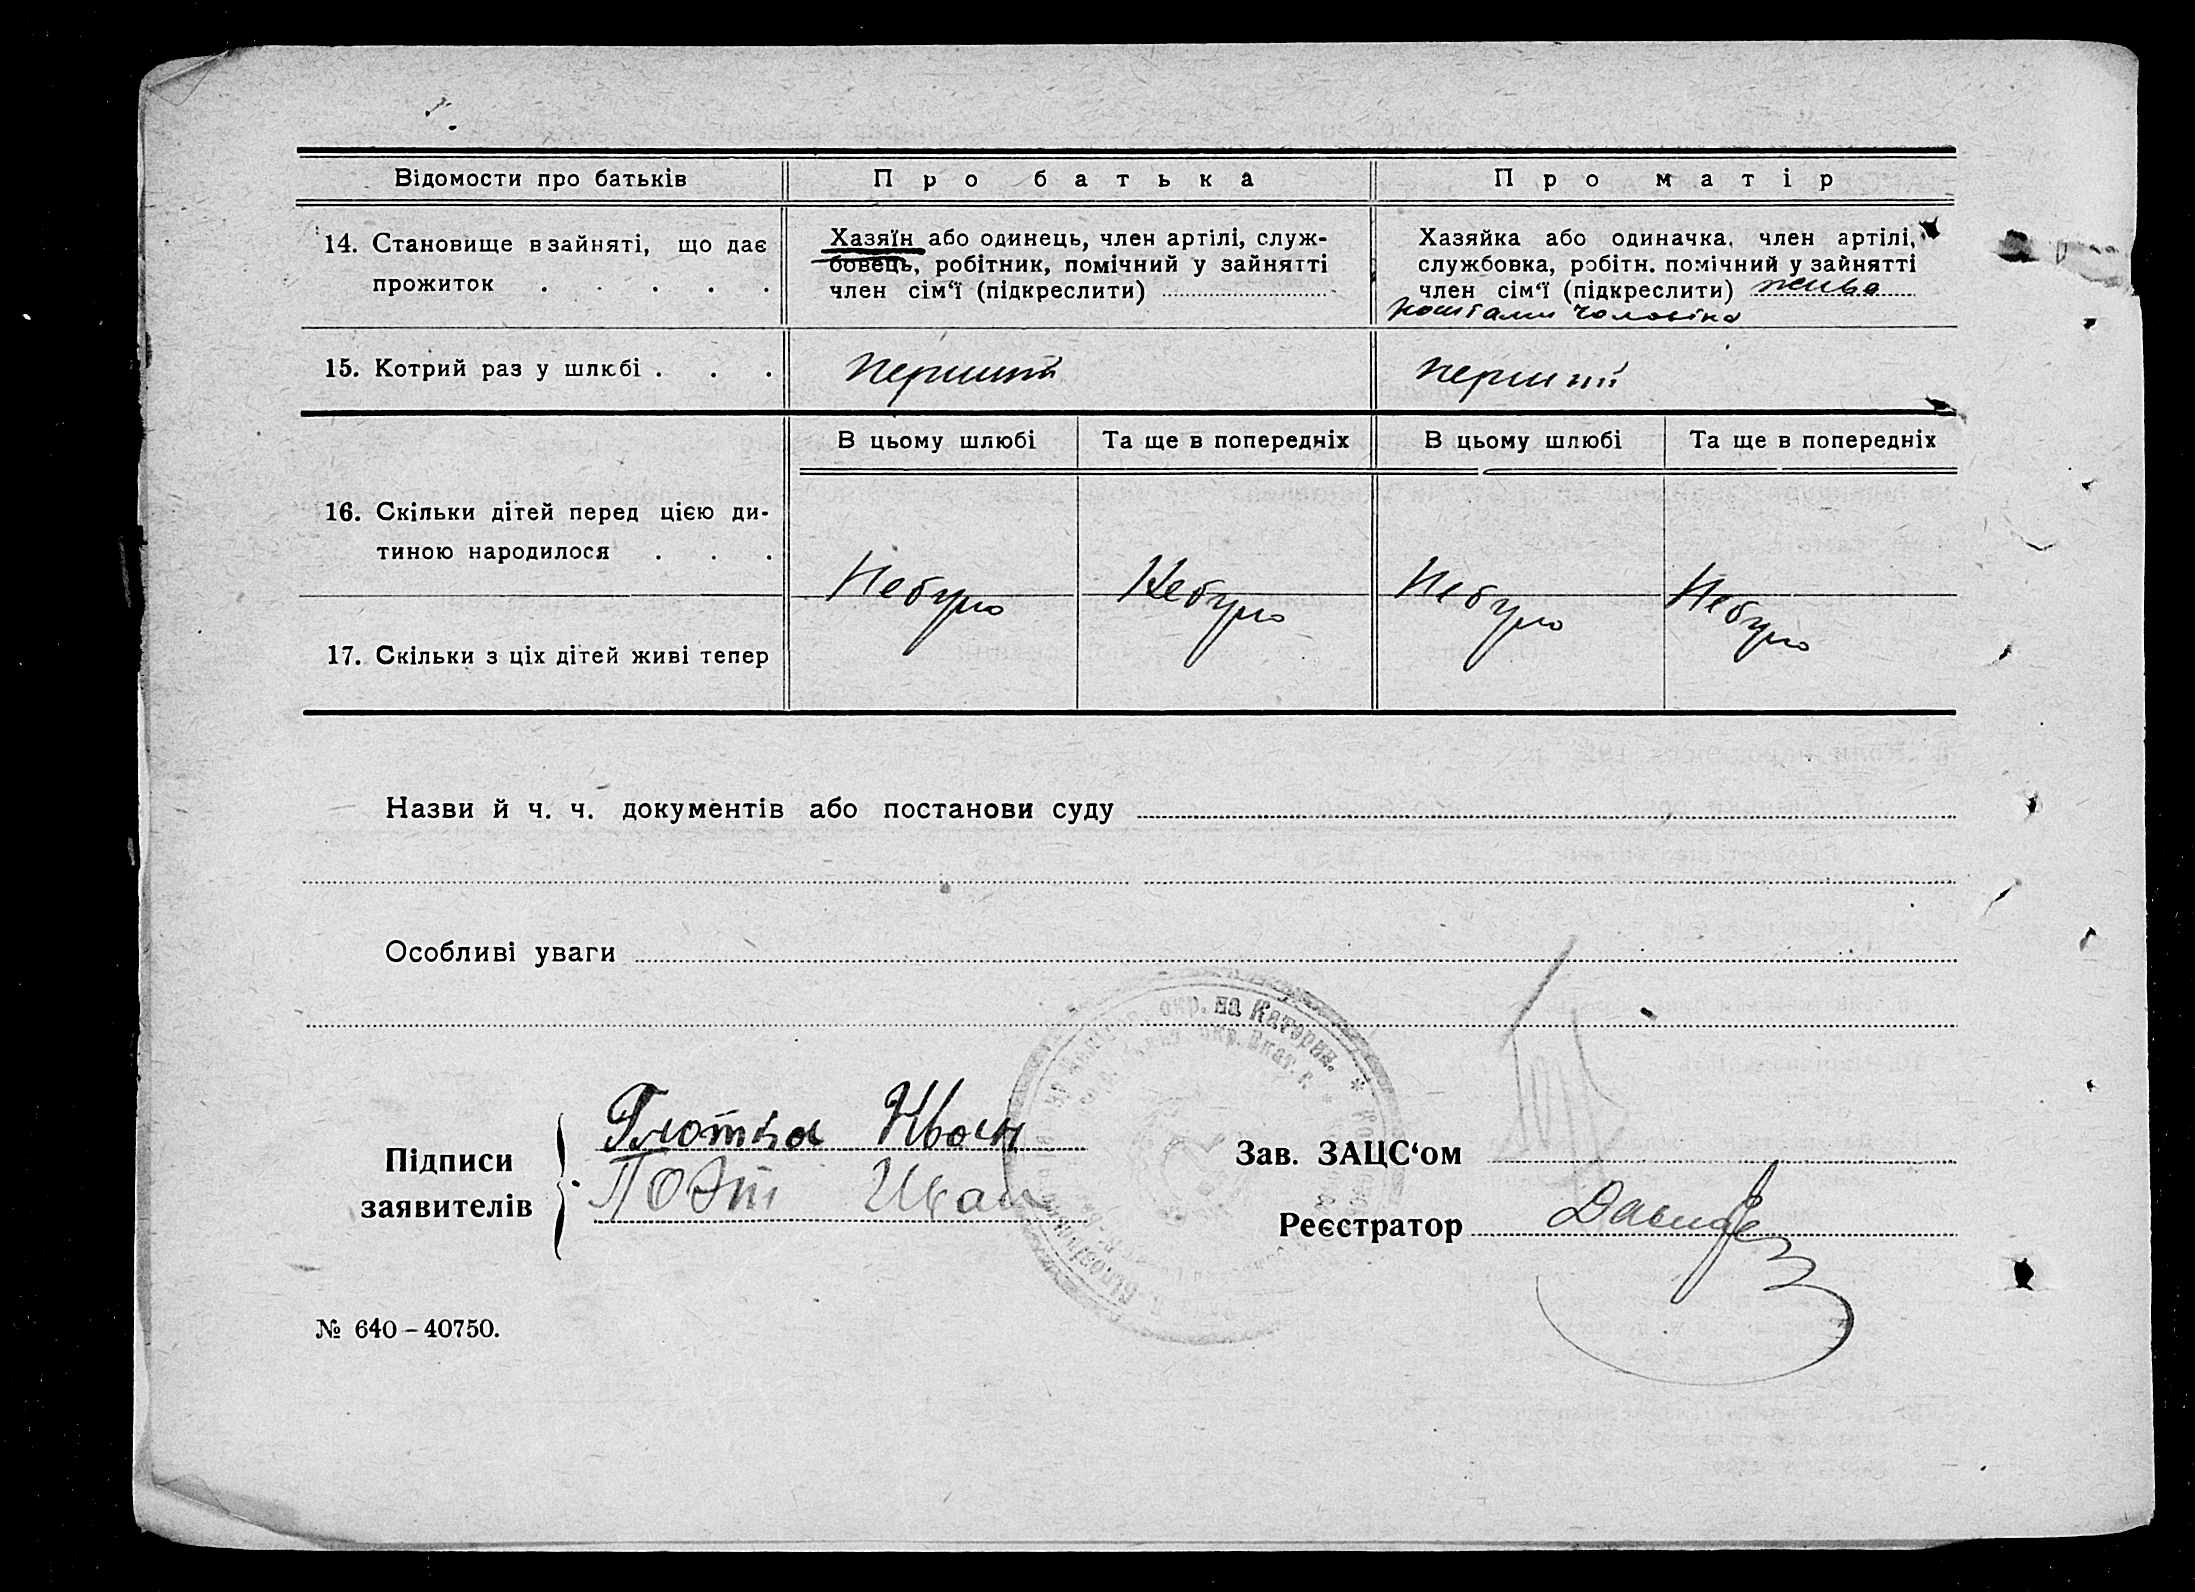 Відомости про батьків
Про батька
Про матір
14. Становище в зайняті, що дає
прожиток . . . . .
Хазяїн або одинець, член артілі, служ-
бовець, робітник, помічний у зайнятті
член сім‘ї (підкреслити)
Хазяйка або одиначка, член артілі,
службовка, робітн. помічний у зайнятті
член сім‘ї (підкреслити) жива
коштами чоловіка
15. Котрий раз у шлюбі . . .
перший
перший
В цьому шлюбі
Та ще в попередніх
В цьому шлюбі
Та ще в попередніх
16. Скільки дітей перед цією ди-
тиною народилося . . .
Небуло
Небуло
Небуло
Небуло
17. Скільки з ціх дітей живі тепер
Назви й ч. ч. документів або постанови суду
Особливі уваги
окр. на Катерин.
окр. Екат. г.
Підписи
заявителів
Глотка Иван
Иван
Зав. ЗАЦС‘ом
Реєстратор
№ 640–40750.